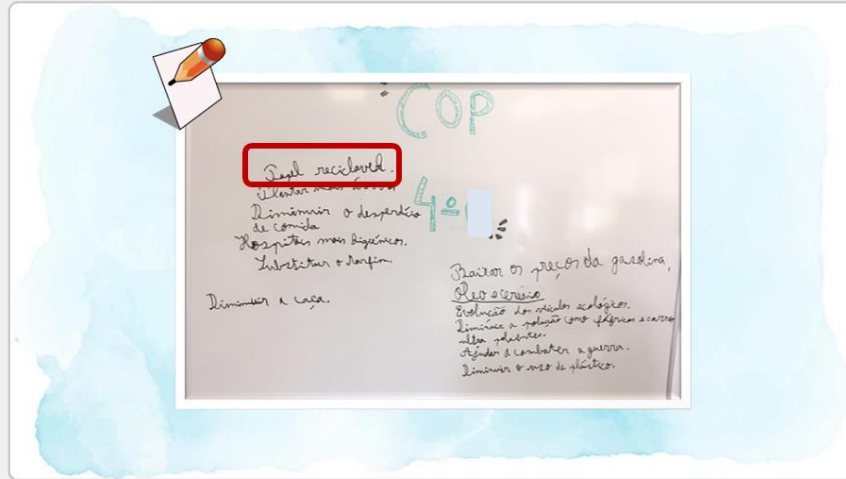 COP
4º
Papel reciclavel.
Plantar mais
Diminuir o desperdício
de comida
Hospitais mais higiénicos.
Substituir o marfim.
Diminuir a caça.
Baixar os preços da gasolina,
Óleo e
Evolução dos veículos ecológicos.
a poluição como fábricas e carros
ultra poluentes.
Ajudar a combater a guerra.
Diminuir o uso de plástico.